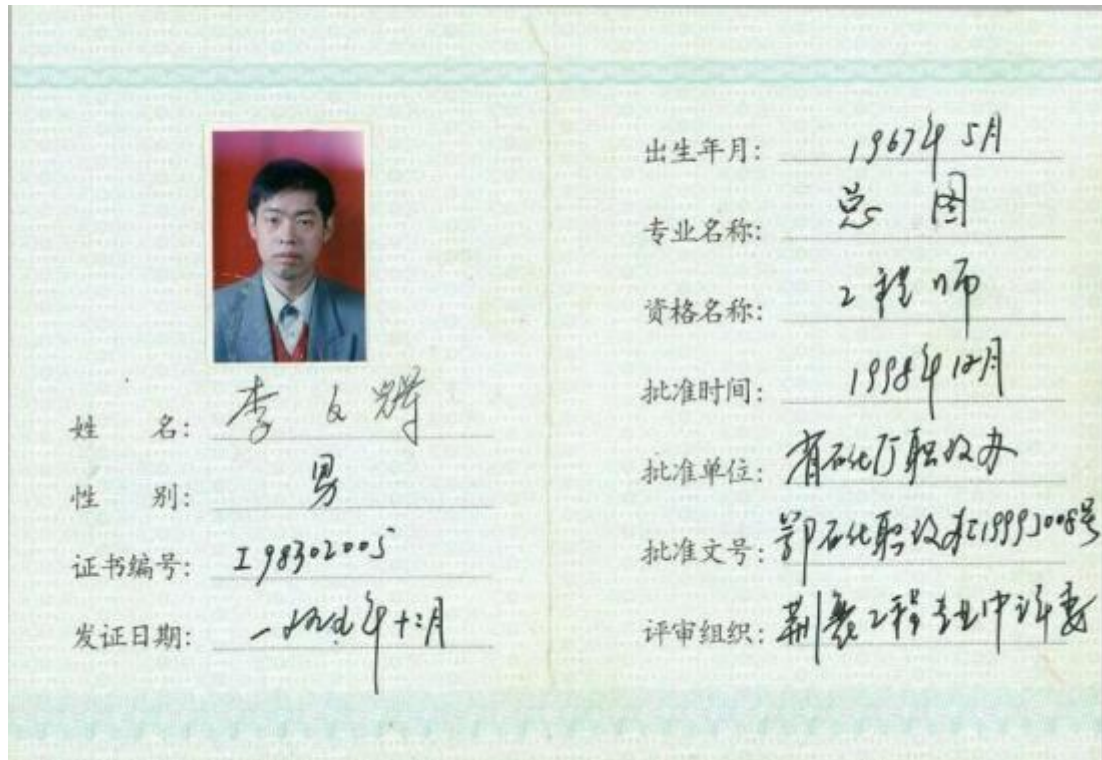 姓 名: 李文辉
性 别: 男
证书编号: I98302005
发证日期: 一九九九年十二月
出生年月: 1967年5月
专业名称: 总图
资格名称: 工程师
批准时间: 1998年12月
批准单位: 省石化厅职改办
批准文号: 鄂石化职改办[1999]008号
评审组织: 荆襄工程专业中评委